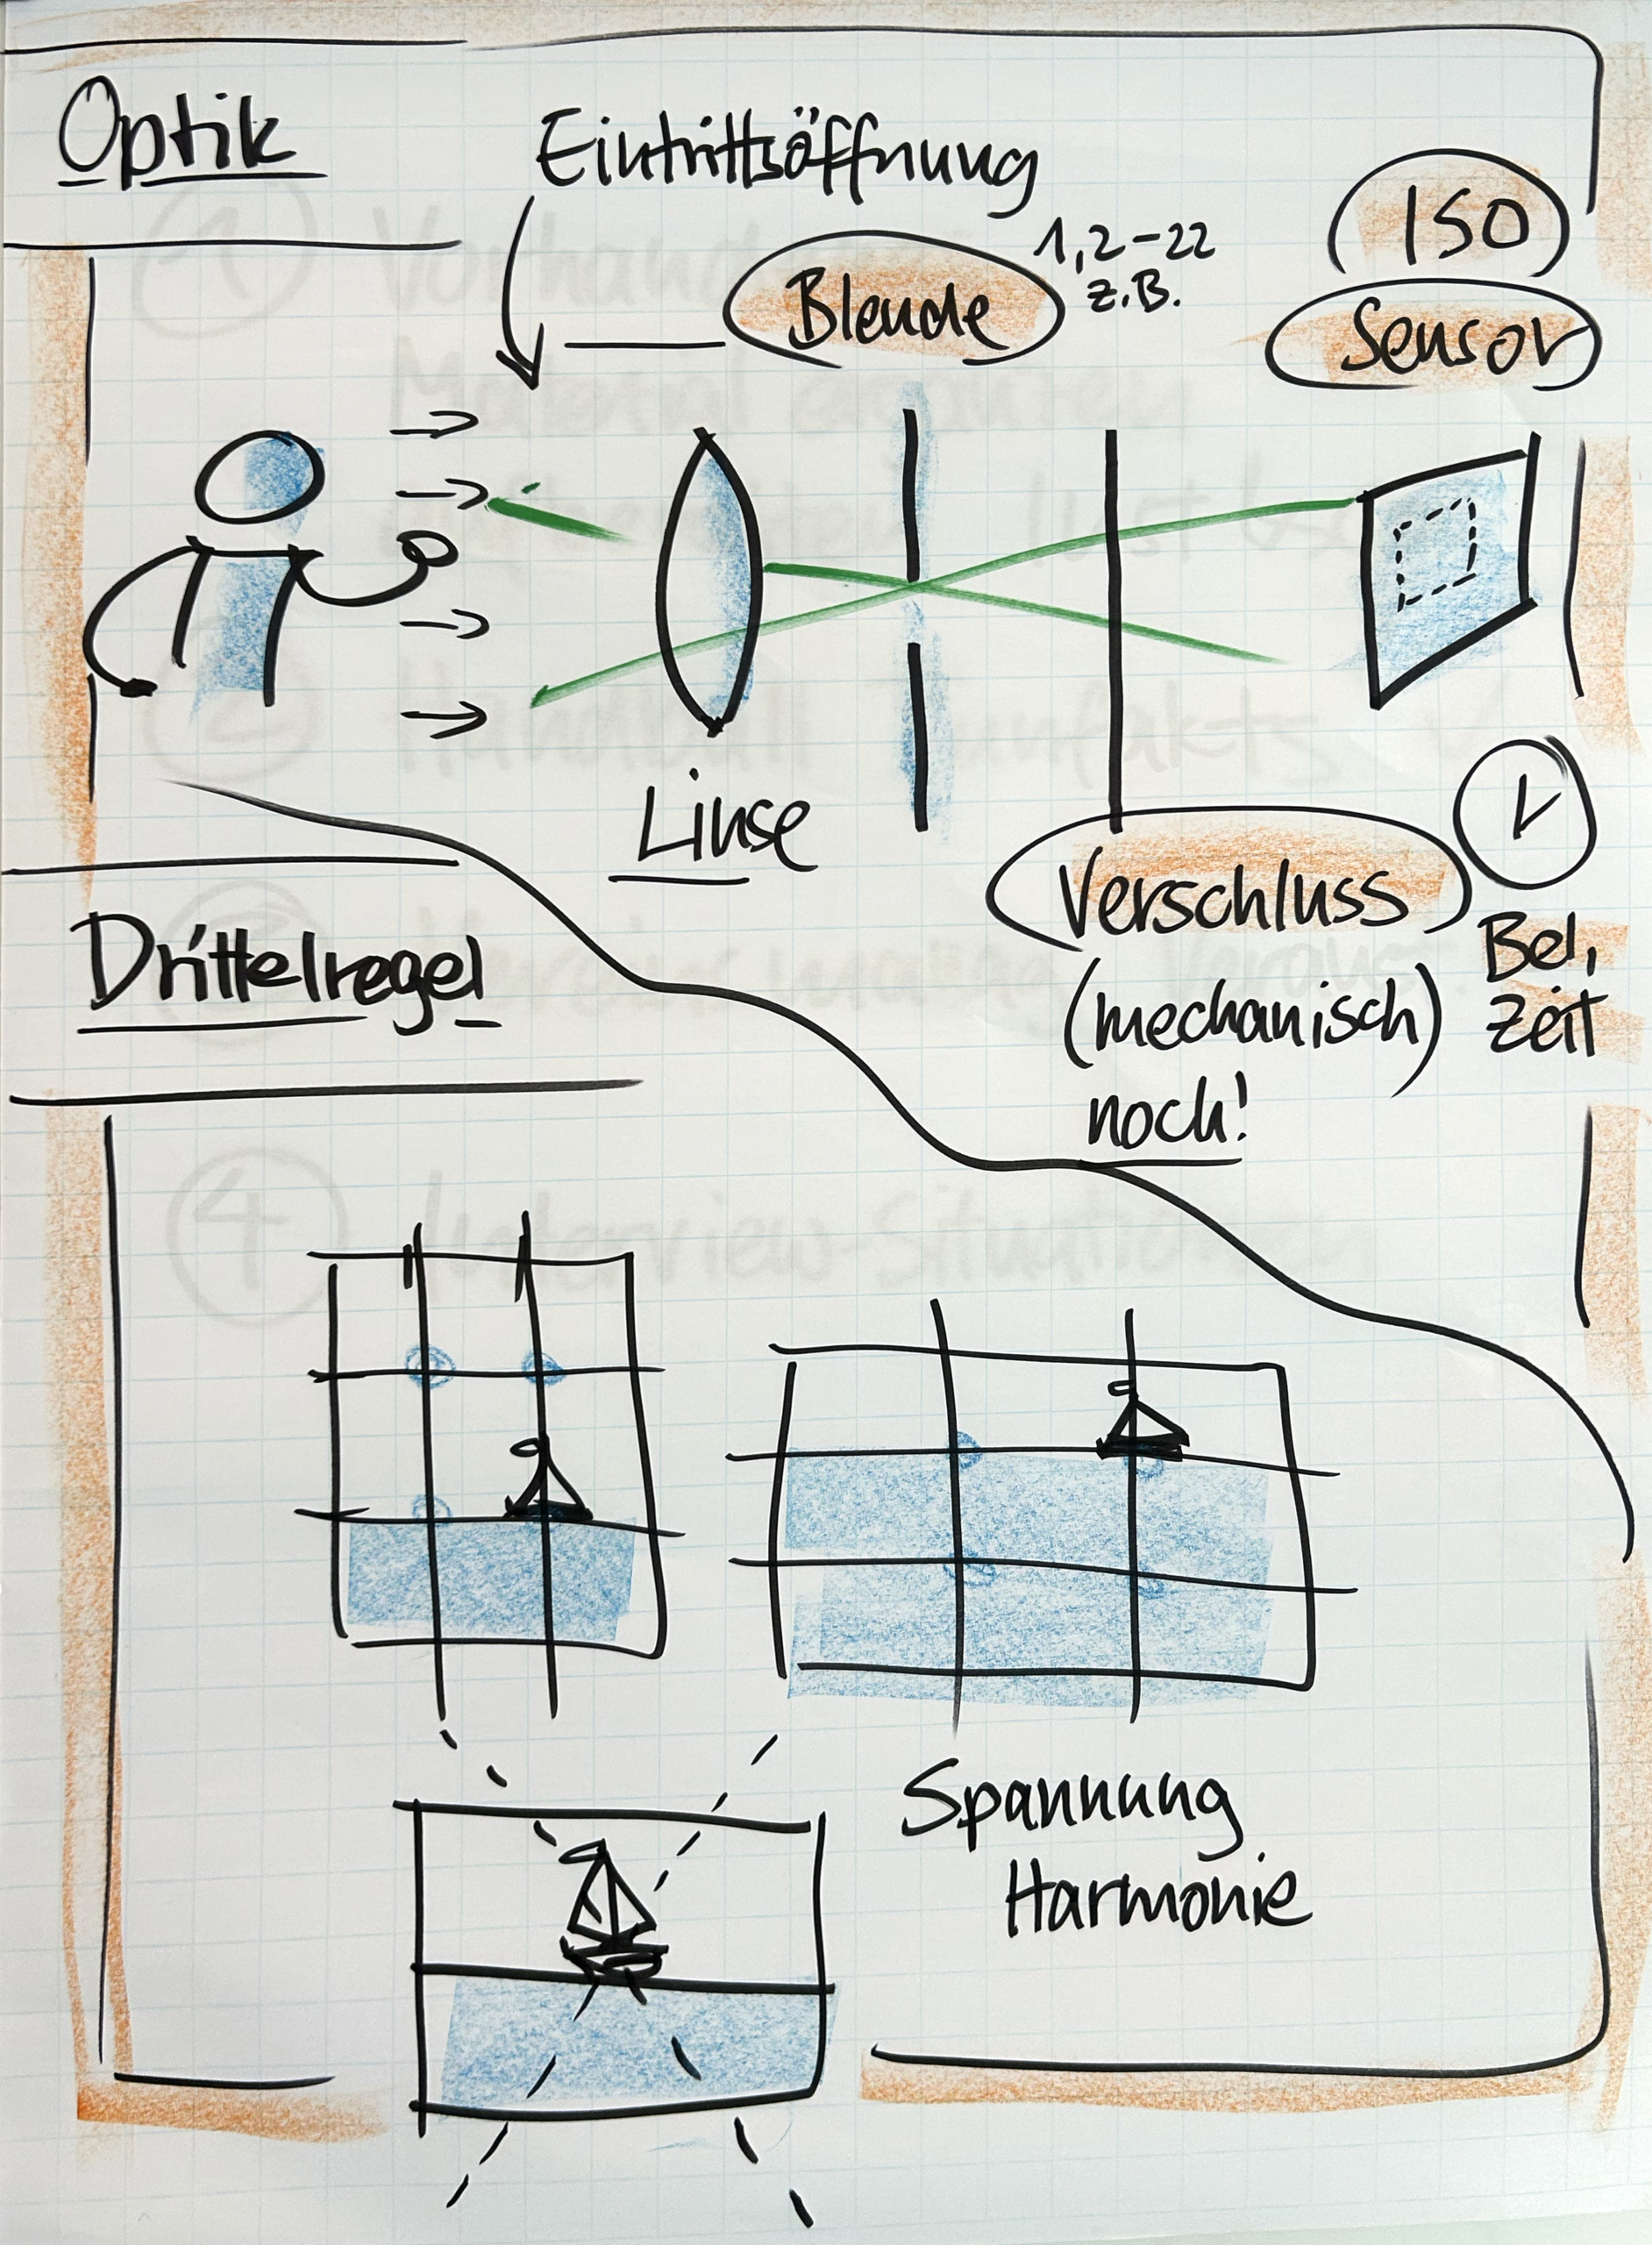 Optik
Eintrittsöffnung
Blende
1,2-22
z.B.
ISO
Sensor
Linse
Verschluss
(mechanisch)
noch!
Bel.
Zeit
Drittelregel
Spannung
Harmonie
4
Interview-Situationen